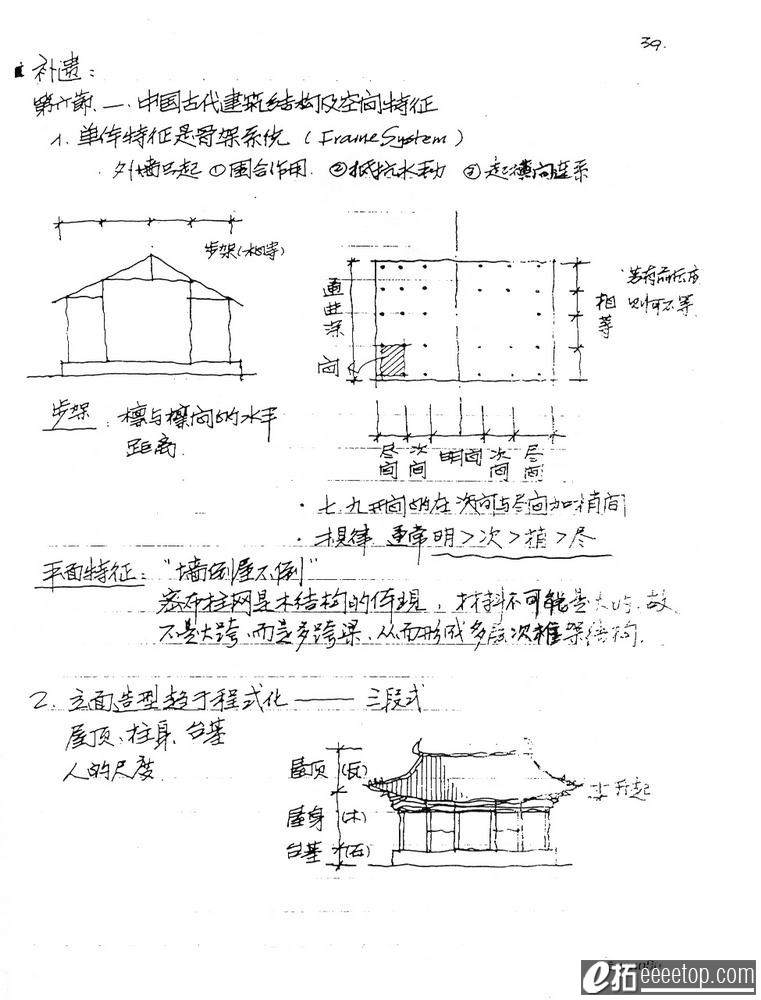 39.
补遗：
第六節、一、中国古代建筑结构及空间特征
1. 单体特征是骨架系统 (Frame System)
外墙只起 ①围合作用. ②抵抗水平力 ③起横向连系
步架(水平等)
通进深
间
相等
若有前后廊
则可不等.
步架：檩与檩间的水平
距离.
尽间 次间 明间 次间 尽间
· 七.九开间的在次间与尽间加梢间
· 规律 通常明>次>梢>尽
平面特征："墙倒屋不倒"
密布柱网是木结构的体现，材料不可能是大的,故
不是大跨、而是多跨梁、从而形成多层次框架结构.
2. 立面造型趋于程式化——三段式
屋顶、柱身、台基
人的尺度
屋顶 (瓦)
升起
屋身 (木)
台基 (石)
e拓 eeeetop.com